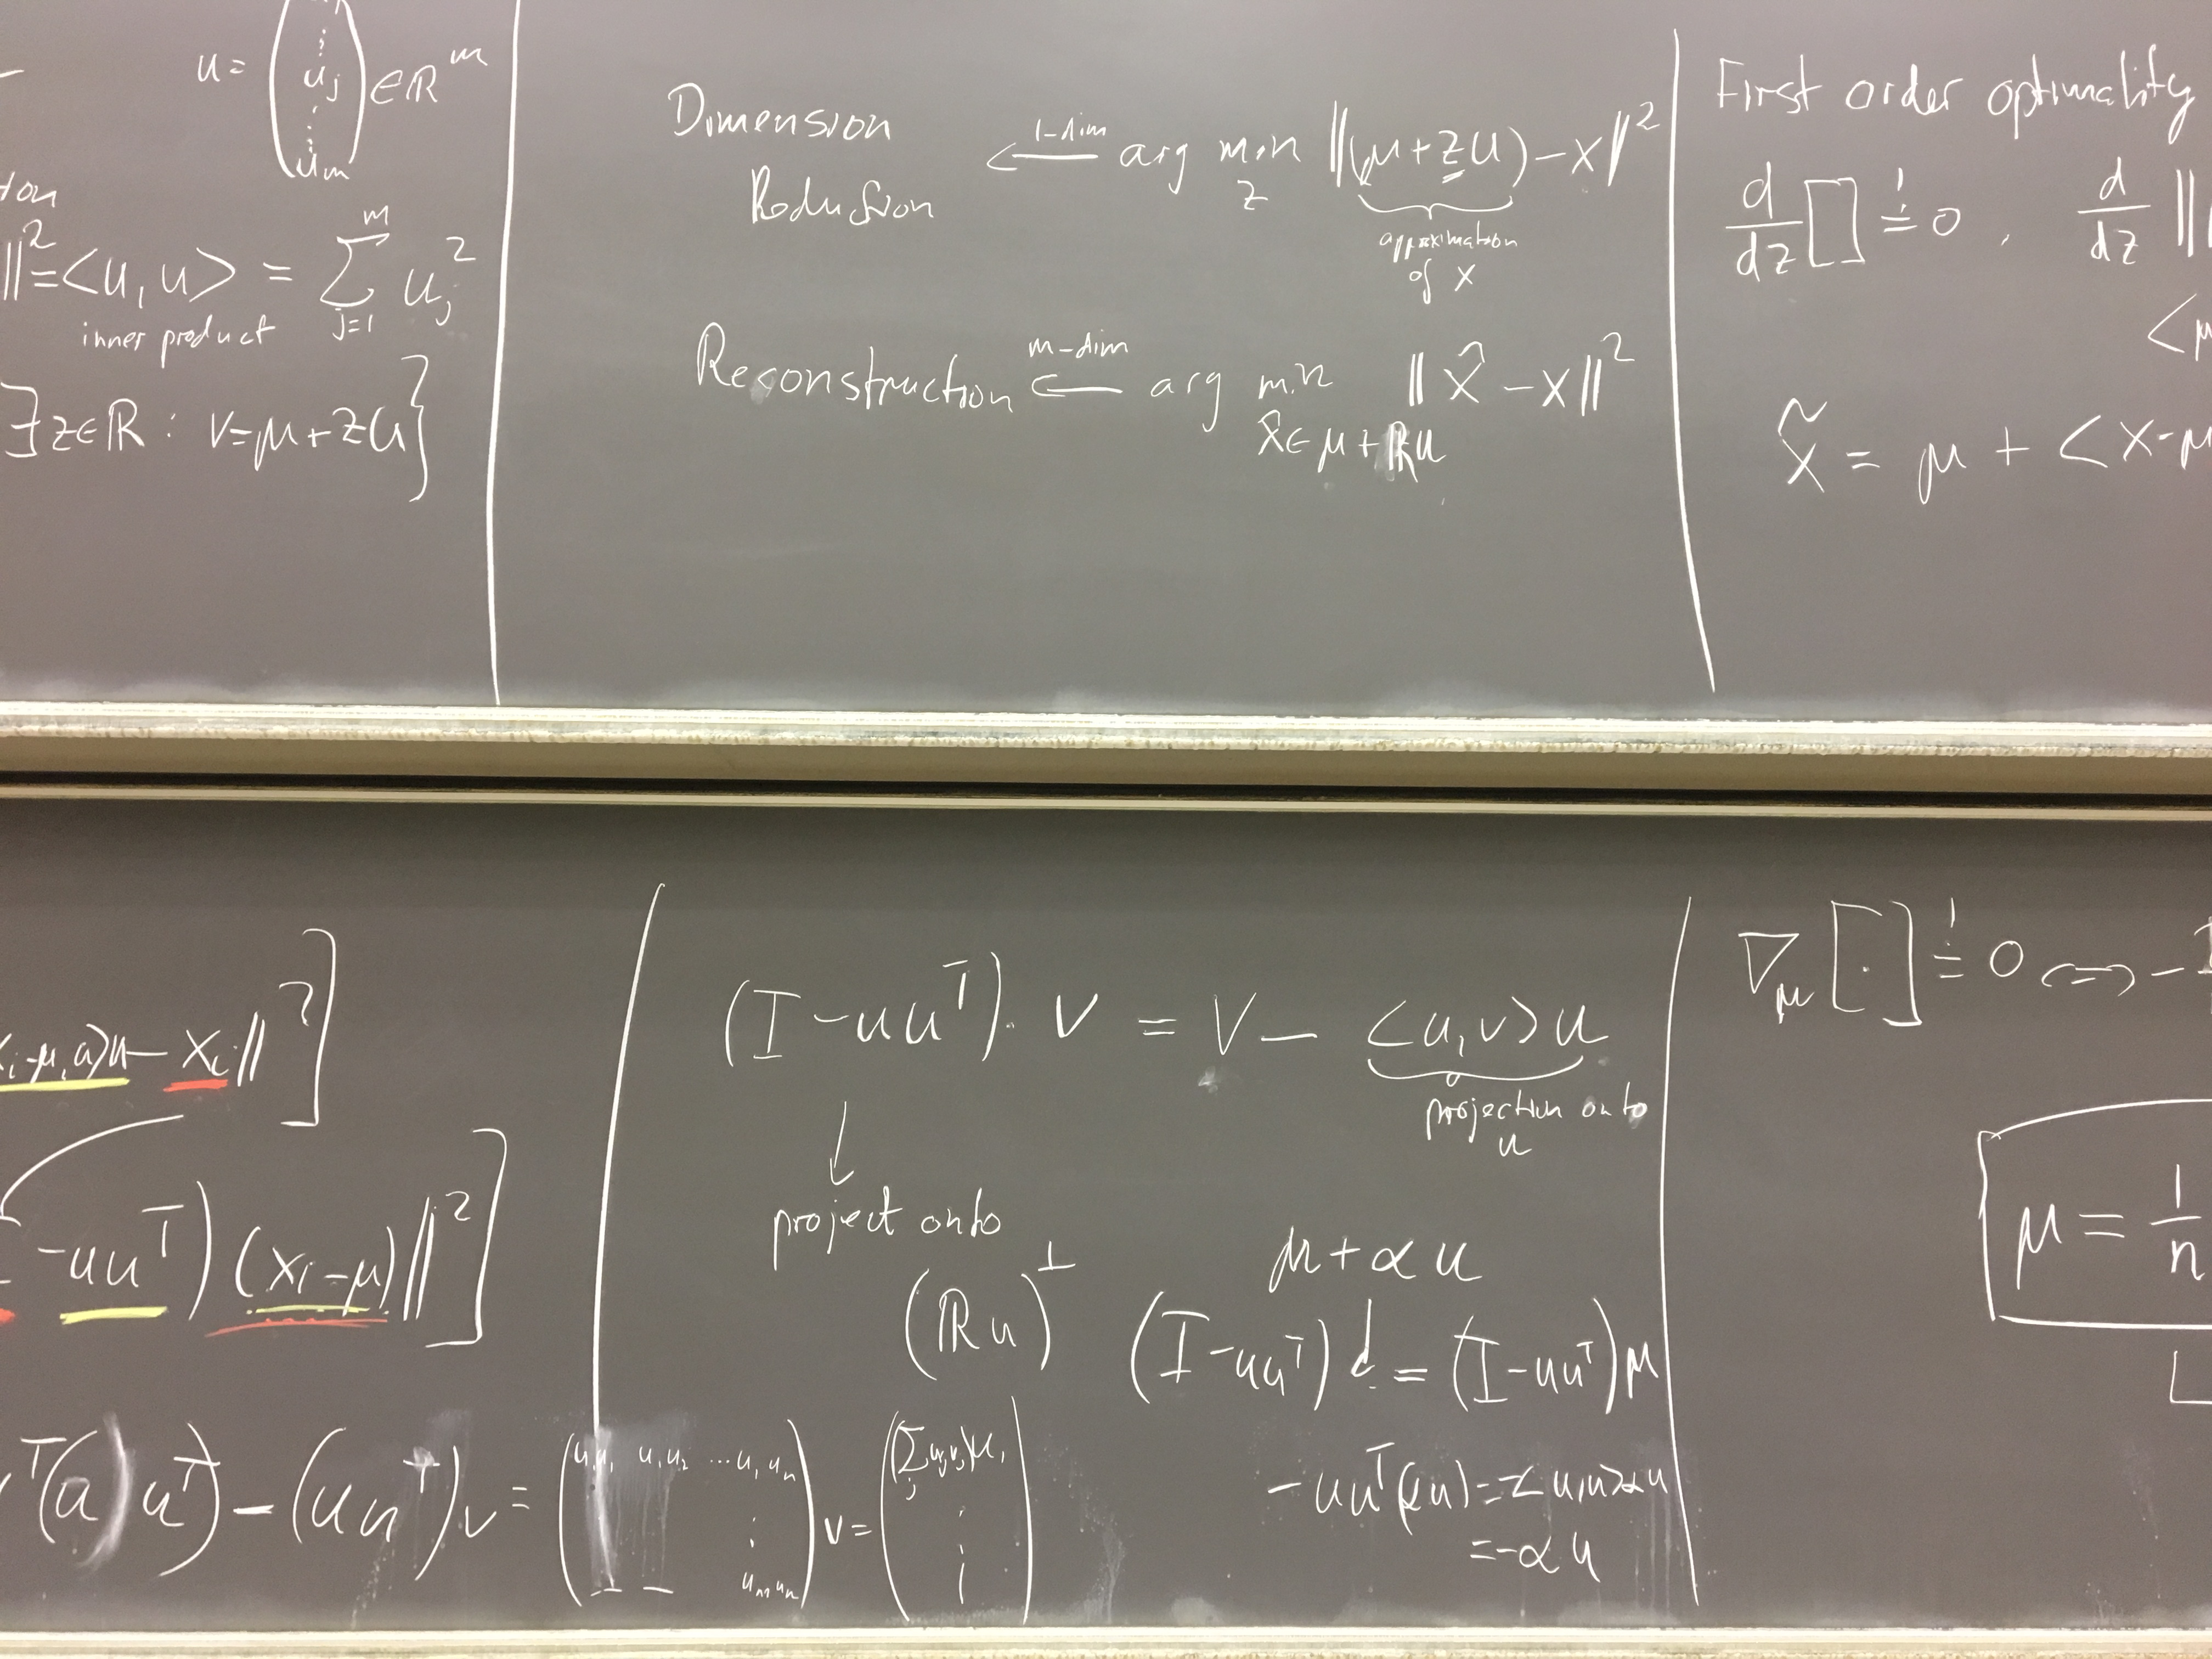 u = ( ⋮ u_j ⋮ u_m ) ∈ ℝ^m
‖² = <u, u> = ∑_{j=1}^{m} u_j²
inner product
∃ z ∈ ℝ : v = μ + zu}
Dimension Reduction ←(1-dim) arg min_z ‖(μ + zu) − x‖²
approximation
of x
Reconstruction ←(m-dim) arg min_{x̂ ∈ μ + ℝu} ‖x̂ − x‖²
First order optimality
d/dz [ ] =! 0 , d/dz ‖
<μ
x̃ = μ + <x-μ
i-μ, u>u − x_i‖²]
-uu^T)(x_i − μ)‖²]
^T(u)u^T) − (uu^T)v = ( u_1u_1 u_1u_2 ... u_1u_n ⋮ u_mu_n ) v = ( (∑_j u_jv_j)u_1 ⋮ )
(I − uu^T) · v = v − <u, v>u
projection onto
u
↓
project onto
(ℝu)^⊥
μ + αu
(I − uu^T) ↓ = (I − uu^T)μ
− uu^T(αu) = − <u,u>αu
= −αu
∇_μ [·] =! 0 <=> −
μ = 1/n